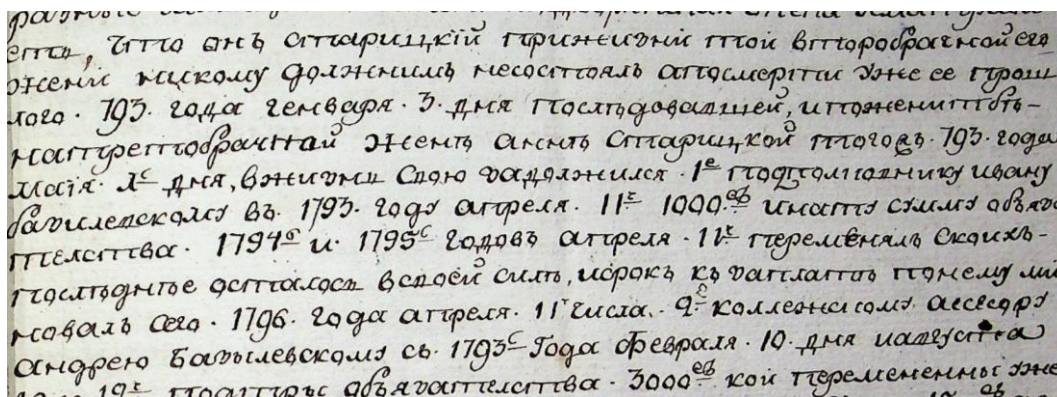 етъ, что онъ старицкій прижизни той второбрачной его
жени никому должнимъ несостоялъ апосмерти уже ее прош
лого. 793. года генваря. 3. дня последовавшей, ипоженитбѣ-
натретобрачной женѣ аннѣ старицкой тогожъ. 793. года
маія. дня, вжизни свою задолжился. 1е подполковнику ивану
базилевскому въ. 1793. году апреля. 11г 1000.ев инату сумму обяза
телства. 1794с и. 1795с годовъ апреля. 11г. переменялъ скоихъ-
последнее осталось всвоей силѣ, исрокъ къ заплатѣ понему ми
новалъ сего. 1796. года апреля. 11г числа. 2е коллежскому асесору
андрею базилевскому съ. 1793с года февраля. 10. дня иавгуста
потри обязателства. 3000ев кои переменены уже